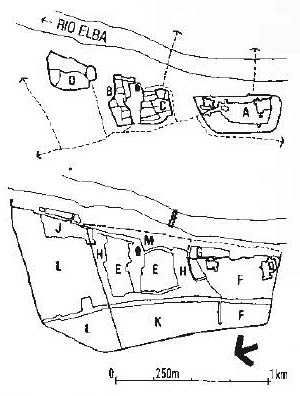 ← RIO ELBA
D
B
C
A
J
M
G
H
E
E
H
F
Ł
Ł
K
F
0 250m 1 km